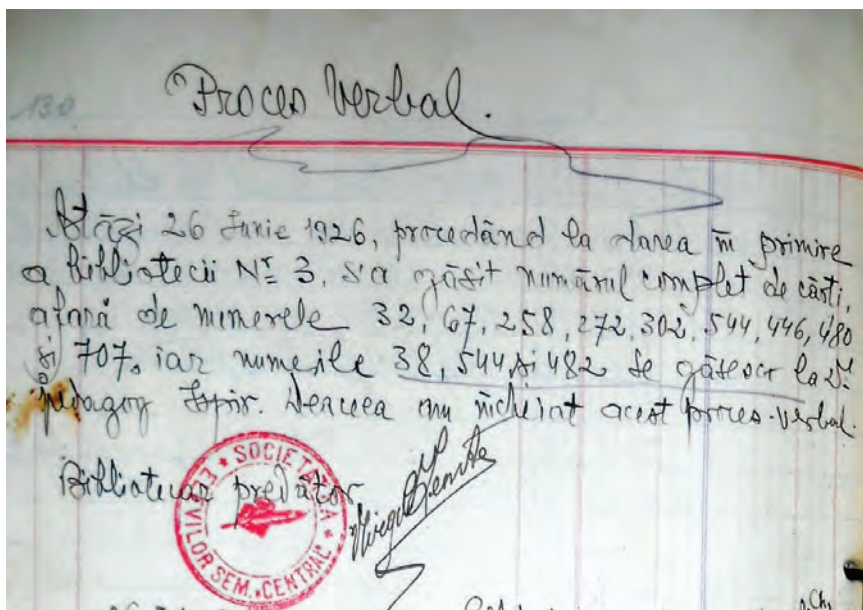 130
Proces Verbal.
Astăzi 26 Iunie 1926, procedând la darea în primire
a bibliotecii Nr 3, s'a găsit numărul complet de cărți,
afară de numerele 32, 67, 258, 272, 302, 544, 446, 480
și 707, iar numerile 38, 544, și 482 se găsesc la Dl
pedagog Ispir. Dreceea am încheiat acest proces-verbal.
Bibliotecar predător
SOCIETATEA ELEVILOR SEM. CENTRAL